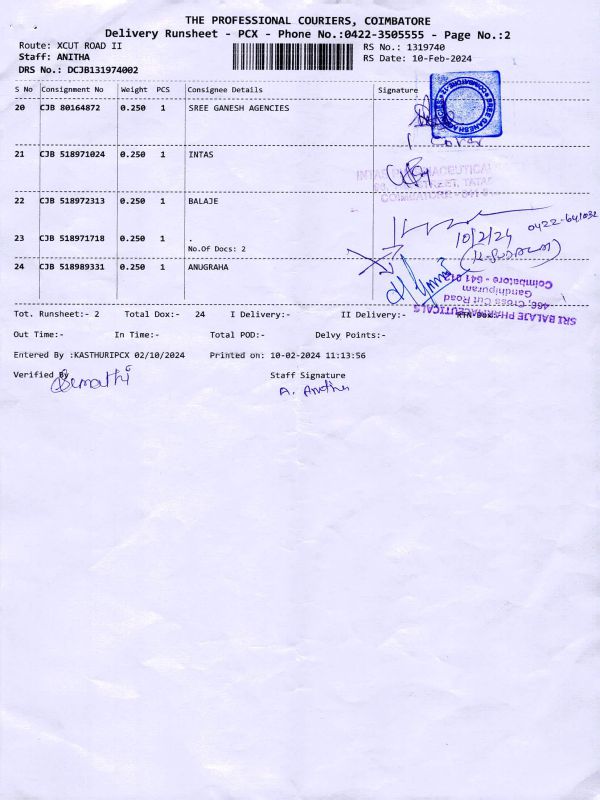 THE PROFESSIONAL COURIERS, COIMBATORE
Delivery Runsheet - PCX - Phone No.:0422-3505555 - Page No.:2
Route: XCUT ROAD II
RS No.: 1319740
Staff: ANITHA
RS Date: 10-Feb-2024
DRS No.: DCJB131974002
S No Consignment No Weight PCS Consignee Details Signature
20 CJB 80164872 0.250 1 SREE GANESH AGENCIES
SREE GANESH AGENCIES
COIMBATORE-12
21 CJB 518971024 0.250 1 INTAS
COIMBATORE - 641
22 CJB 518972313 0.250 1 BALAJE
23 CJB 518971718 0.250 1 .
No.Of Docs: 2
10/2/24
24 CJB 518989331 0.250 1 ANUGRAHA
SRI BALAJE PHARMACEUTICALS
466, Cross Cut Road
Gandhipuram
Coimbatore - 641 012
Tot. Runsheet:- 2 Total Dox:- 24 I Delivery:- II Delivery:- RTN Dox:-
Out Time:- In Time:- Total POD:- Delvy Points:-
Entered By :KASTHURIPCX 02/10/2024 Printed on: 10-02-2024 11:13:56
Verified By
Staff Signature